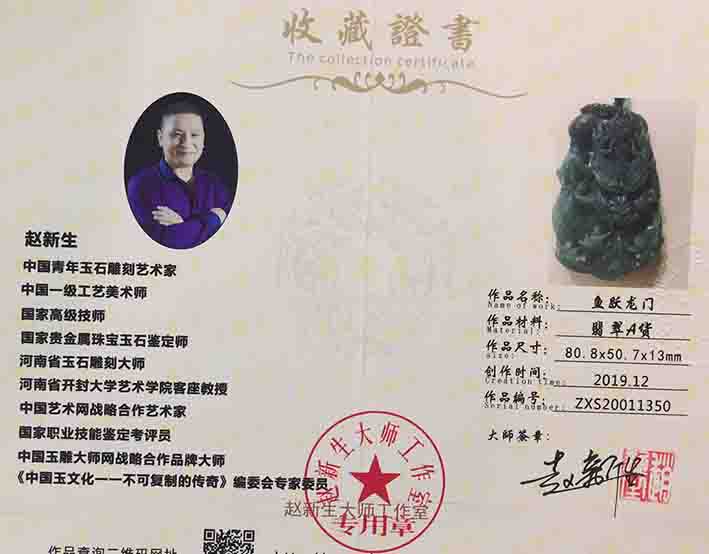 收藏證書
The collection certificate
赵新生
中国青年玉石雕刻艺术家
中国一级工艺美术师
国家高级技师
国家贵金属珠宝玉石鉴定师
河南省玉石雕刻大师
河南省开封大学艺术学院客座教授
中国艺术网战略合作艺术家
国家职业技能鉴定考评员
中国玉雕大师网战略合作品牌大师
《中国玉文化一一不可复制的传奇》编委会专家委员
作品名称: 鱼跃龙门
Name of work:
作品材料: 翡翠A货
Material:
作品尺寸: 80.8x50.7x13mm
size:
创作时间: 2019.12
Creation time:
作品编号: ZXS20011350
Serial number:
大师签章:
赵新生
赵新生大师工作室
专用章
赵新生大师工作室
作品查询二维码网址